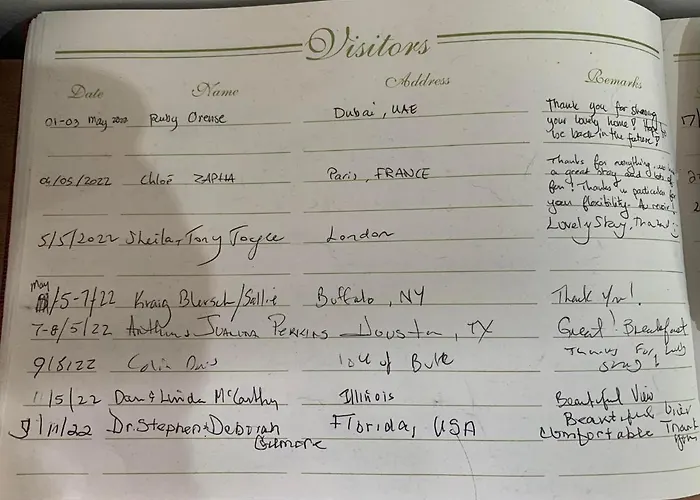 Visitors
Date Name Address Remarks
01-03 May 2022 Ruby Orense Dubai, UAE Thank you for sharing
your lovely home! Hope to
be back in the future!
04/05/2022 Chloé ZAPHA Paris, FRANCE Thanks for everything, we had
a great stay and lots of
fun! Thanks in particular for
your flexibility. Au revoir!
5/5/2022 Sheila, Tony Joyce London Lovely Stay, Thanks
May
/5-7/22 Kraig Blersch/Sallie Buffalo, NY Thank you!
7-8/5/22 Perkins Houston, TX Great! Breakfast
9/5/22 Colin Isle of Bute Thanks For Lovely
Stay!
11/5/22 Dan & Linda McCarthy Illinois Beautiful View
9/11/22 Dr. Stephen & Deborah Florida, USA Beautiful View
Gilmore Comfortable Thank
you